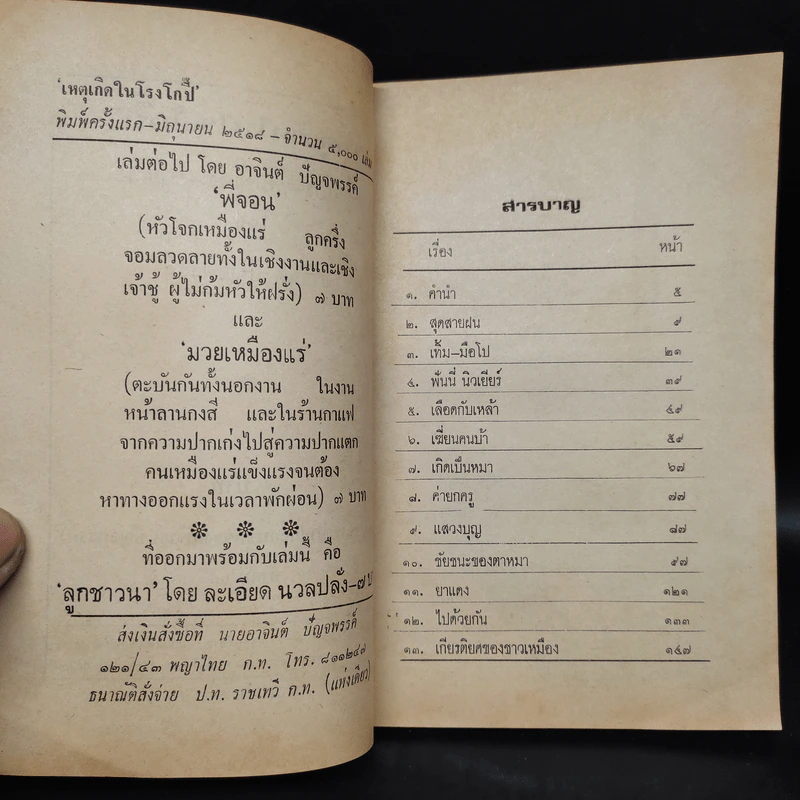 'เหตุเกิดในโรงโกปี๊'
พิมพ์ครั้งแรก–มิถุนายน ๒๕๑๘ – จำนวน ๕,๐๐๐ เล่ม
เล่มต่อไป โดย อาจินต์ ปัญจพรรค์
'พี่จอน'
(หัวโจกเหมืองแร่ ลูกครึ่ง
จอมลวดลายทั้งในเชิงงานและเชิง
เจ้าชู้ ผู้ไม่ก้มหัวให้ฝรั่ง) ๗ บาท
และ
'มวยเหมืองแร่'
(ตะบันกันทั้งนอกงาน ในงาน
หน้าลานกงสี และในร้านกาแฟ
จากความปากเก่งไปสู่ความปากแตก
คนเหมืองแร่แข็งแรงจนต้อง
หาทางออกแรงในเวลาพักผ่อน) ๗ บาท
ที่ออกมาพร้อมกับเล่มนี้ คือ
'ลูกชาวนา' โดย ละเอียด นวลปลั่ง–๗ บ
ส่งเงินสั่งซื้อที่ นายอาจินต์ ปัญจพรรค์
๑๒๑/๔๓ พญาไทย ก.ท. โทร. ๘๑๑๒๔๗
ธนาณัติสั่งจ่าย ป.ท. ราชเทวี ก.ท. (แห่งเดียว)
สารบาญ
เรื่อง หน้า
๑. คำนำ ๕
๒. สุดสายฝน ๙
๓. เท้ม–มือโป ๒๑
๔. พันนี่ นิวเยียร์ ๓๙
๕. เลือดกับเหล้า ๔๙
๖. เซี่ยนคนบ้า ๕๙
๗. เกิดเป็นหมา ๖๗
๘. ค่ายกครู ๗๗
๙. แสวงบุญ ๘๗
๑๐. ชัยชนะของตาหมา ๙๗
๑๑. ยาแดง ๑๒๑
๑๒. ไปด้วยกัน ๑๓๓
๑๓. เกียรติยศของชาวเหมือง ๑๔๗